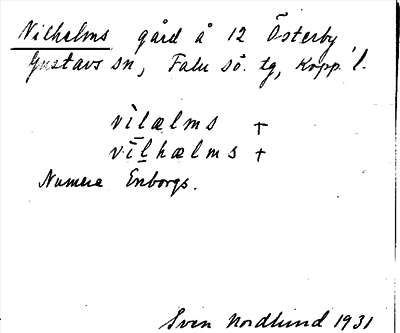 Vilhelms gård å 12 Österby,
Gustavs sn, Falu sö. tg, Kopp. l.
vìlælms +
vìlhælms +
Numera Enborgs.
Sven Nordlund 1931